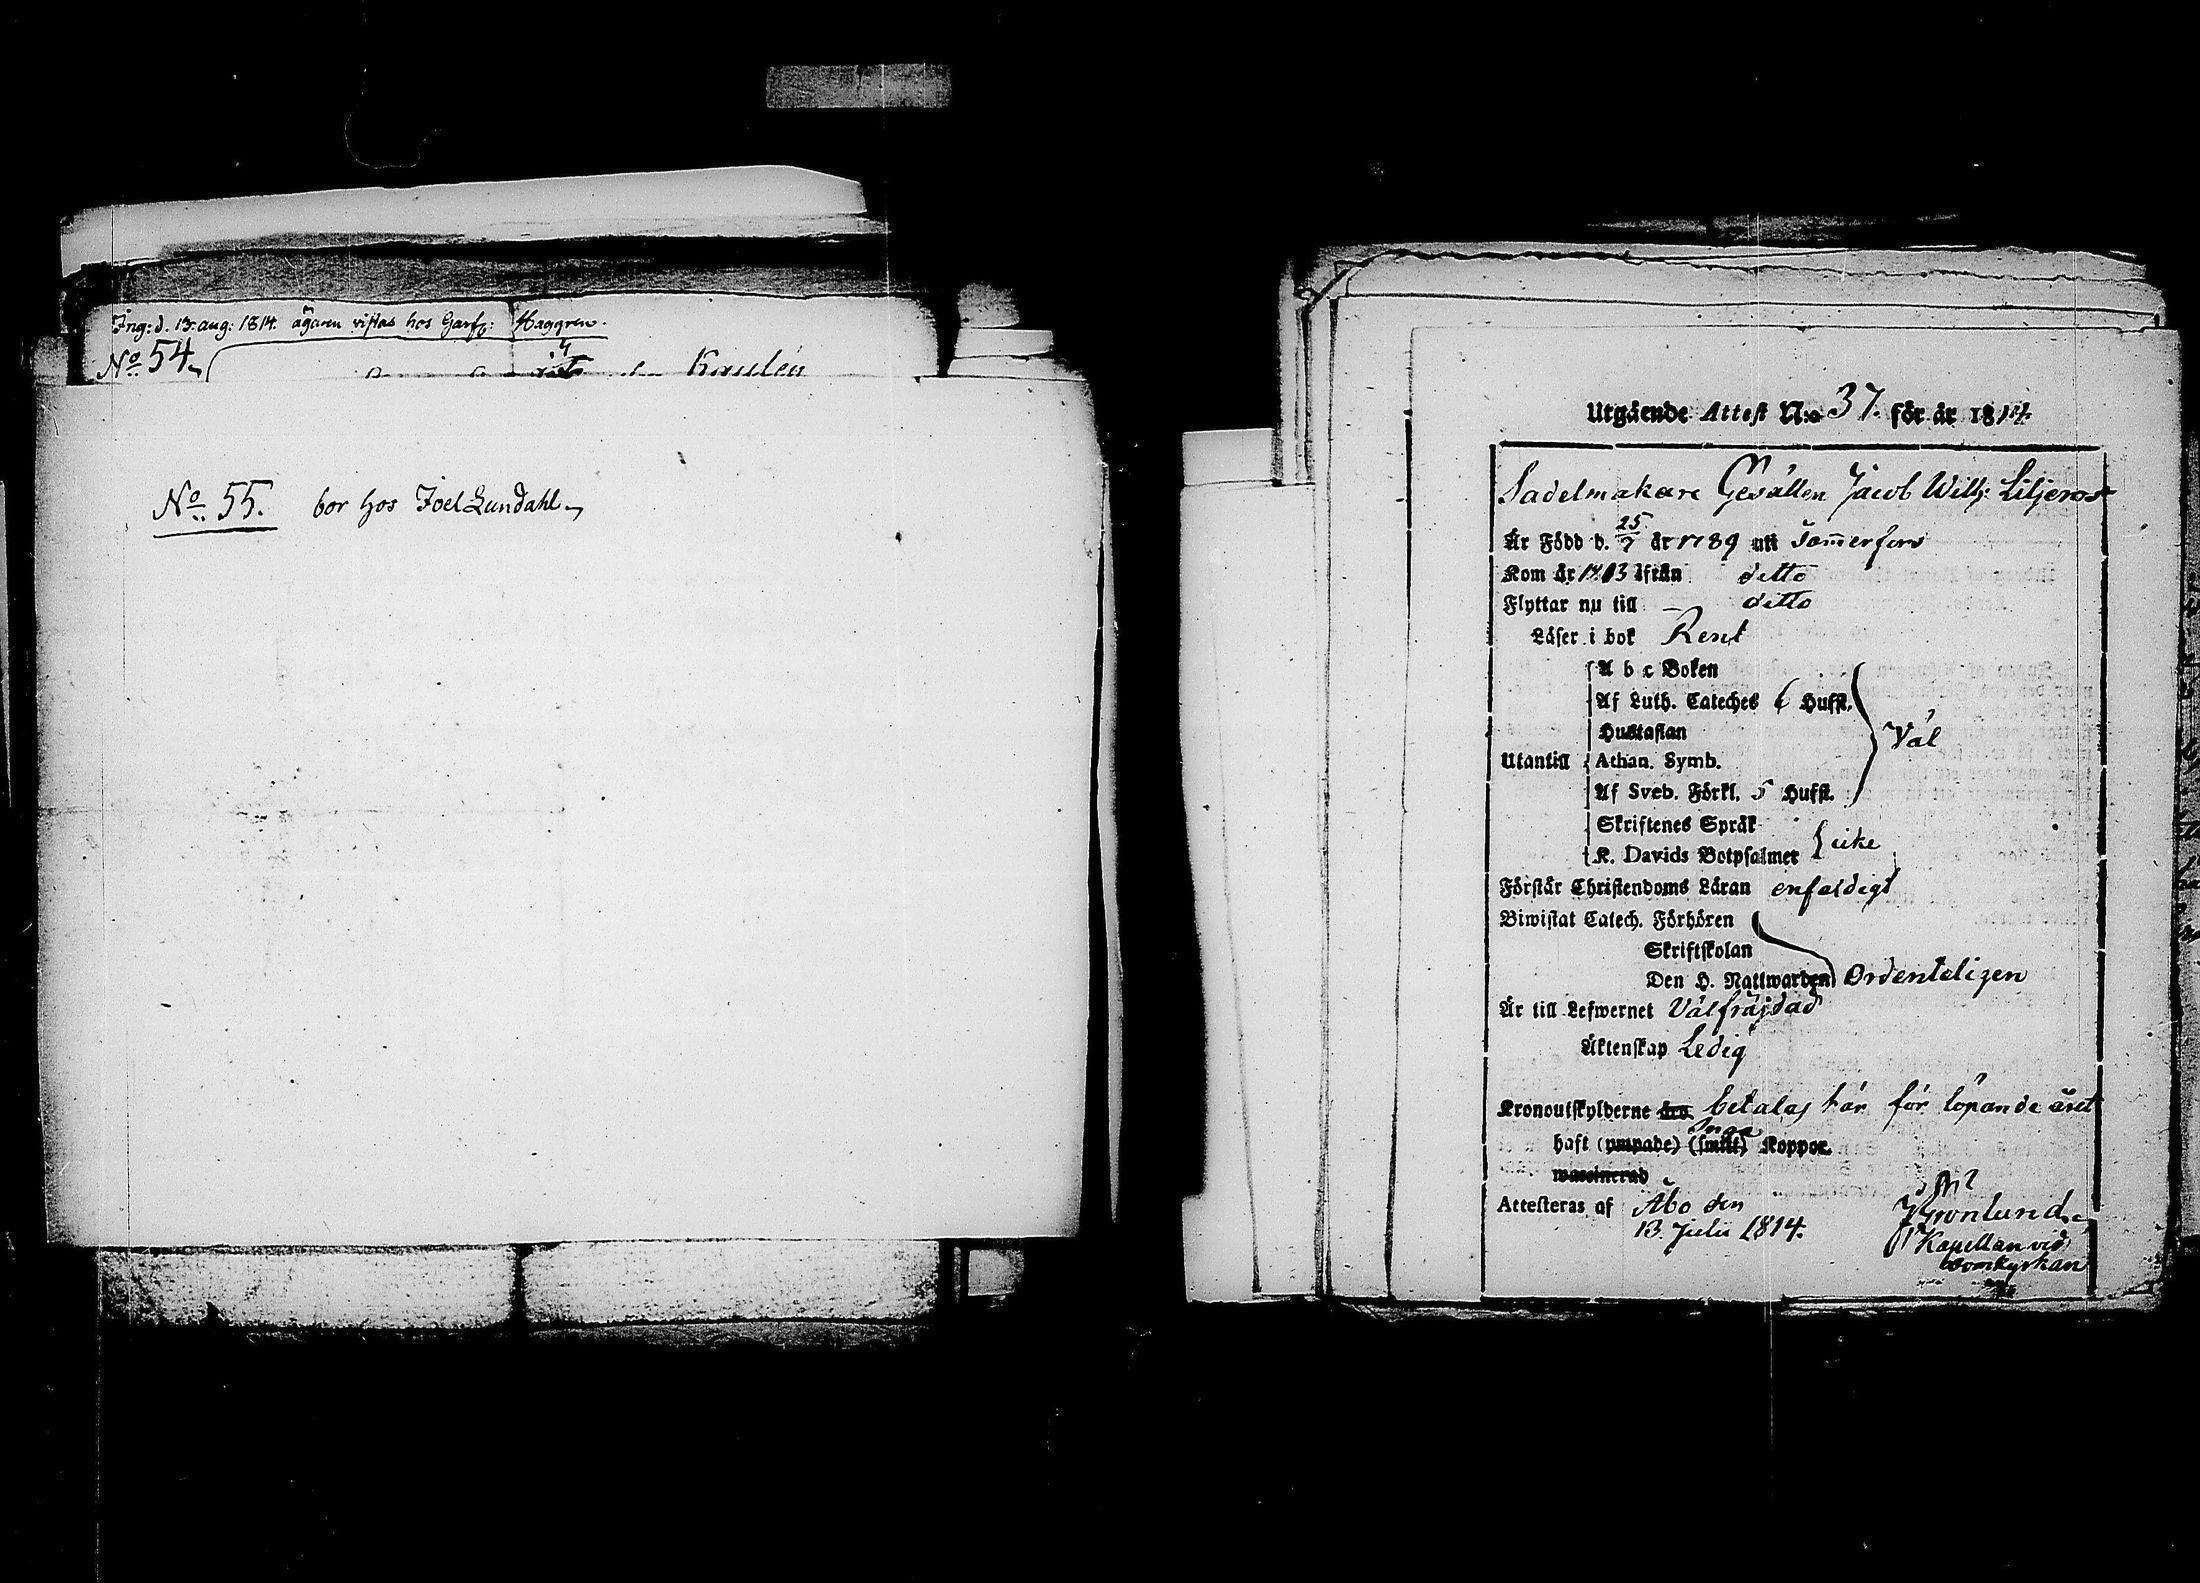 Ing: d. 13. aug: 1814. ägaren vistas hos Garfv: Haggren.
No 54
Kaulén
No 55. bor hos Joel Lundahl
Utgående Attest N:o 37. för år 1814
Sadelmakare Gesällen Jacob Wilh: Liljeros
Är Född d. 25/7 år 1789 uti Tam̄erfors
Kom år 1813 ifrån ditto
Flyttar nu till ditto
Läser i bok Rent
A b c Boken
Af Luth. Cateches 6 Hufst.
Hustaflan
Väl
Utantill Athan. Symb.
Af Sveb. Förkl. 5 Hufst.
Skriftenes Språk
icke
K. Davids Botpsalmer
Förstår Christendoms Läran enfaldigt
Biwistat Catech. Förhören
Skriftskolan
Den H. Nattwarden Ordenteligen
Är till Lefwernet Välfräjdad
Äktenskap Ledig
Kronoutskylderne äro betalas här för löpande året
Inga
haft (ympade) (smitt) Koppor.
waccinerad
Attesteras af Åbo den
13. Julii 1814.
Grönlund
Kapellan vid
Domkyrkan